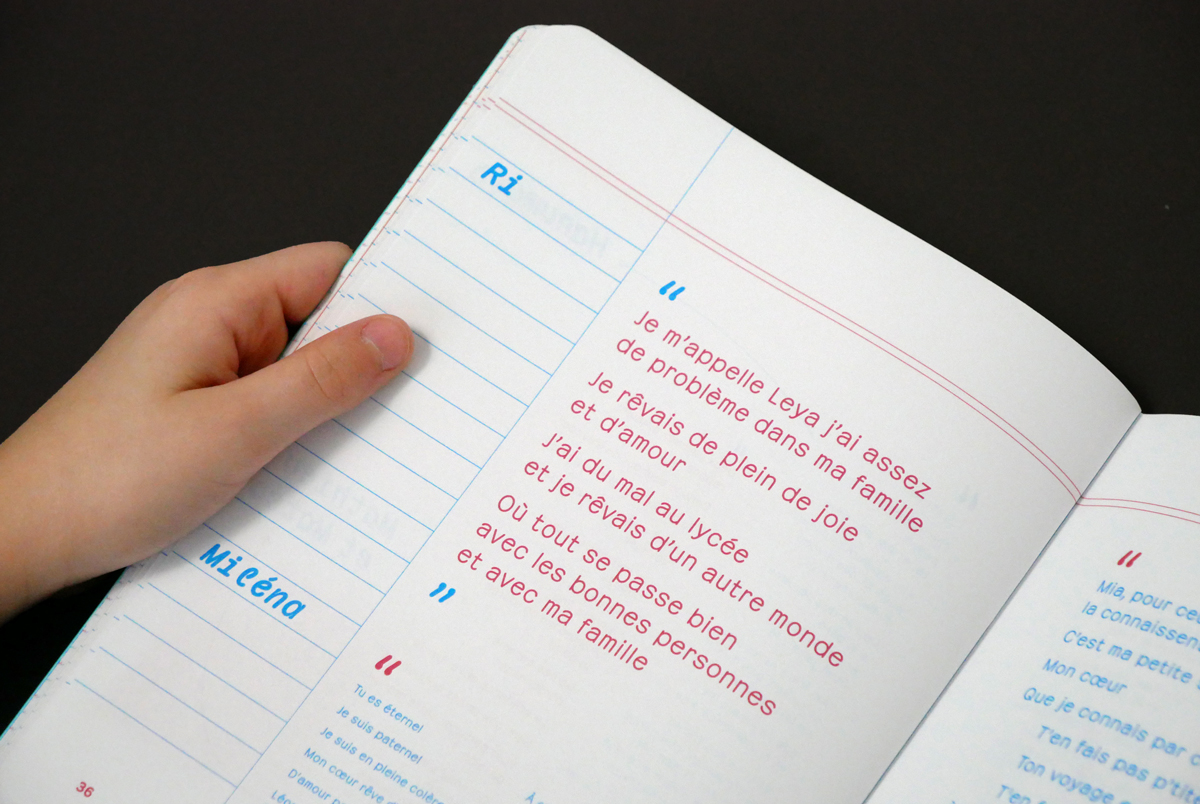 Ri
“
Je m'appelle Leya j'ai assez
de problème dans ma famille
Je rêvais de plein de joie
et d'amour
J'ai du mal au lycée
et je rêvais d'un autre monde
Où tout se passe bien
avec les bonnes personnes
et avec ma famille
”
Miléna
“
Tu es éternel
Je suis paternel
Je suis en pleine colère
Mon cœur rêve
D'amour
36
“
Mia, pour
la connaissent
C'est ma petite
Mon cœur
Que je connais par
T'en fais pas
Ton voyage
T'en